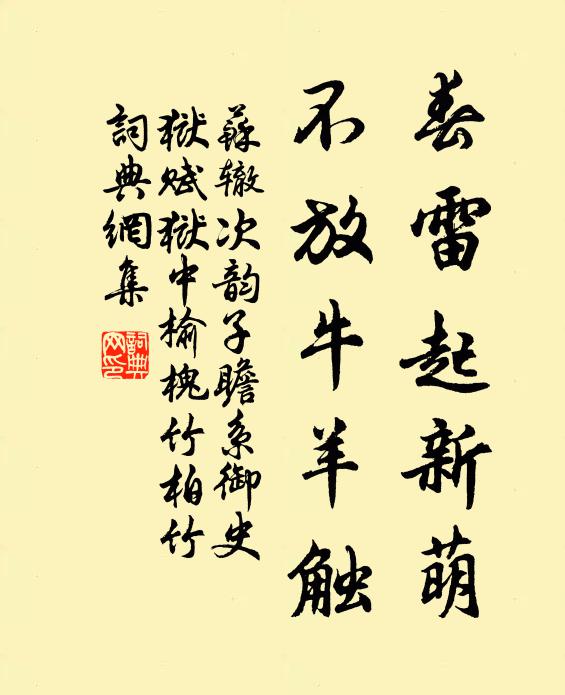 春雷起新萌
不放牛羊触
蘇辙次韵子瞻系御史
獄赋獄中榆槐竹柏竹
詞典網集
詞典网印